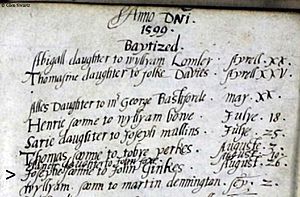 © Giles Swartz
Anno DNI.
1599.
Baptized.
Abigall daughter to wyllyam Lomley Apryll. XX.
Thomasine daughter to folke Davies. Apryll XXV
Alles Daughter to mr George Backforde may. XX.
Henrie sonne to wyllyam bone. Julye. 18.
Sarie daughter to Joseph mallins. Julye. 25.
Thomas sonne to tobye perkes. Auguste. 5.
daughter to John Auguste.
> Josephe sonne to John Ginkes. Auguste. 26.
wyllyam. sonn to martin dennington. Sep. 2.